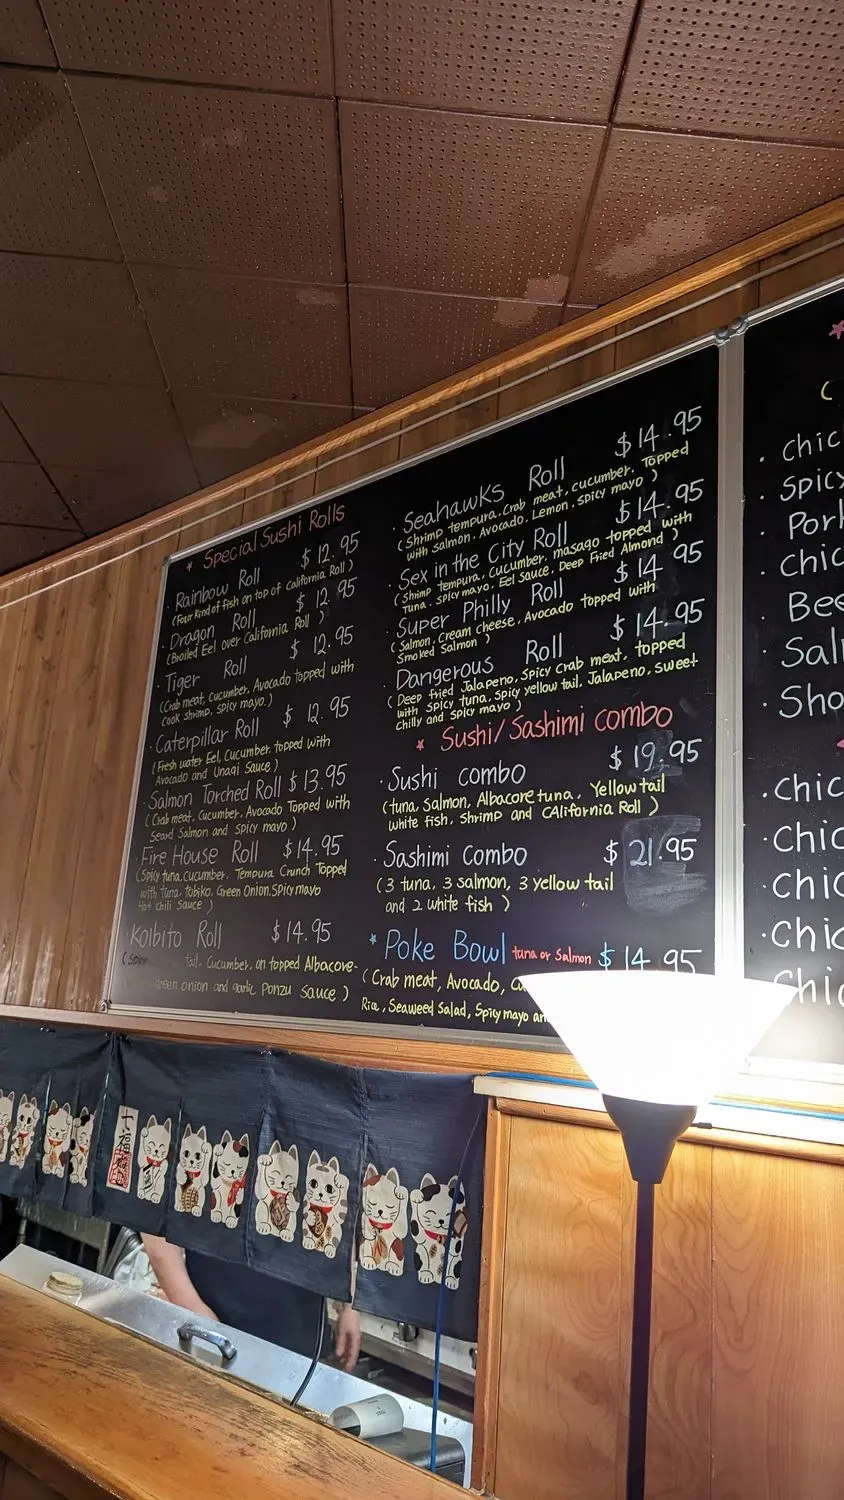 * Special Sushi Rolls
· Rainbow Roll $ 12.95
(Four kind of fish on top of California Roll )
· Dragon Roll $ 12.95
(Broiled Eel over California Roll )
· Tiger Roll $ 12.95
(Crab meat, Cucumber, Avocado topped with
Cook shrimp, spicy mayo.)
· Caterpillar Roll $ 12.95
(Fresh water Eel, Cucumber topped with
Avocado and Unagi Sauce )
· Salmon Torched Roll $ 13.95
(Crab meat, Cucumber, Avocado Topped with
Seard Salmon and Spicy mayo )
· Fire House Roll $14.95
(Spicy tuna, Cucumber, Tempura Crunch Topped
with Tuna, Tobiko, Green Onion, Spicy mayo
Hot Chili Sauce )
· Kolbito Roll $14.95
tail, Cucumber, on topped Albacore-
green onion and garlic Ponzu Sauce )
· Seahawks Roll $14.95
(Shrimp tempura, Crab meat, cucumber, Topped
with Salmon, Avocado, Lemon, spicy mayo )
· Sex in the City Roll $14.95
(Shrimp Tempura, Cucumber, masago topped with
Tuna, spicy mayo, Eel Sauce, Deep Fried Almond )
· Super Philly Roll $14.95
(Salmon, Cream cheese, Avocado topped with
Smoked Salmon )
· Dangerous Roll $14.95
( Deep fried Jalapeno, Spicy Crab meat, topped
with Spicy tuna, Spicy yellow tail, Jalapeno, sweet
chilly and Spicy mayo )
* Sushi/Sashimi combo
· Sushi combo $19.95
(tuna, Salmon, Albacore tuna, Yellow tail
white fish, shrimp and CAlifornia Roll )
· Sashimi Combo $ 21.95
(3 tuna, 3 salmon, 3 yellow tail
and 2 white fish )
* Poke Bowl tuna or Salmon $ 14.95
( Crab meat, Avocado,
Rice, Seaweed Salad, Spicy mayo
(
· Chic
· Spicy
· Pork
· Chic
· Bee
· Sal
· Sho
· Chic
· Chic
· Chic
· Chic
Chic
七福猫